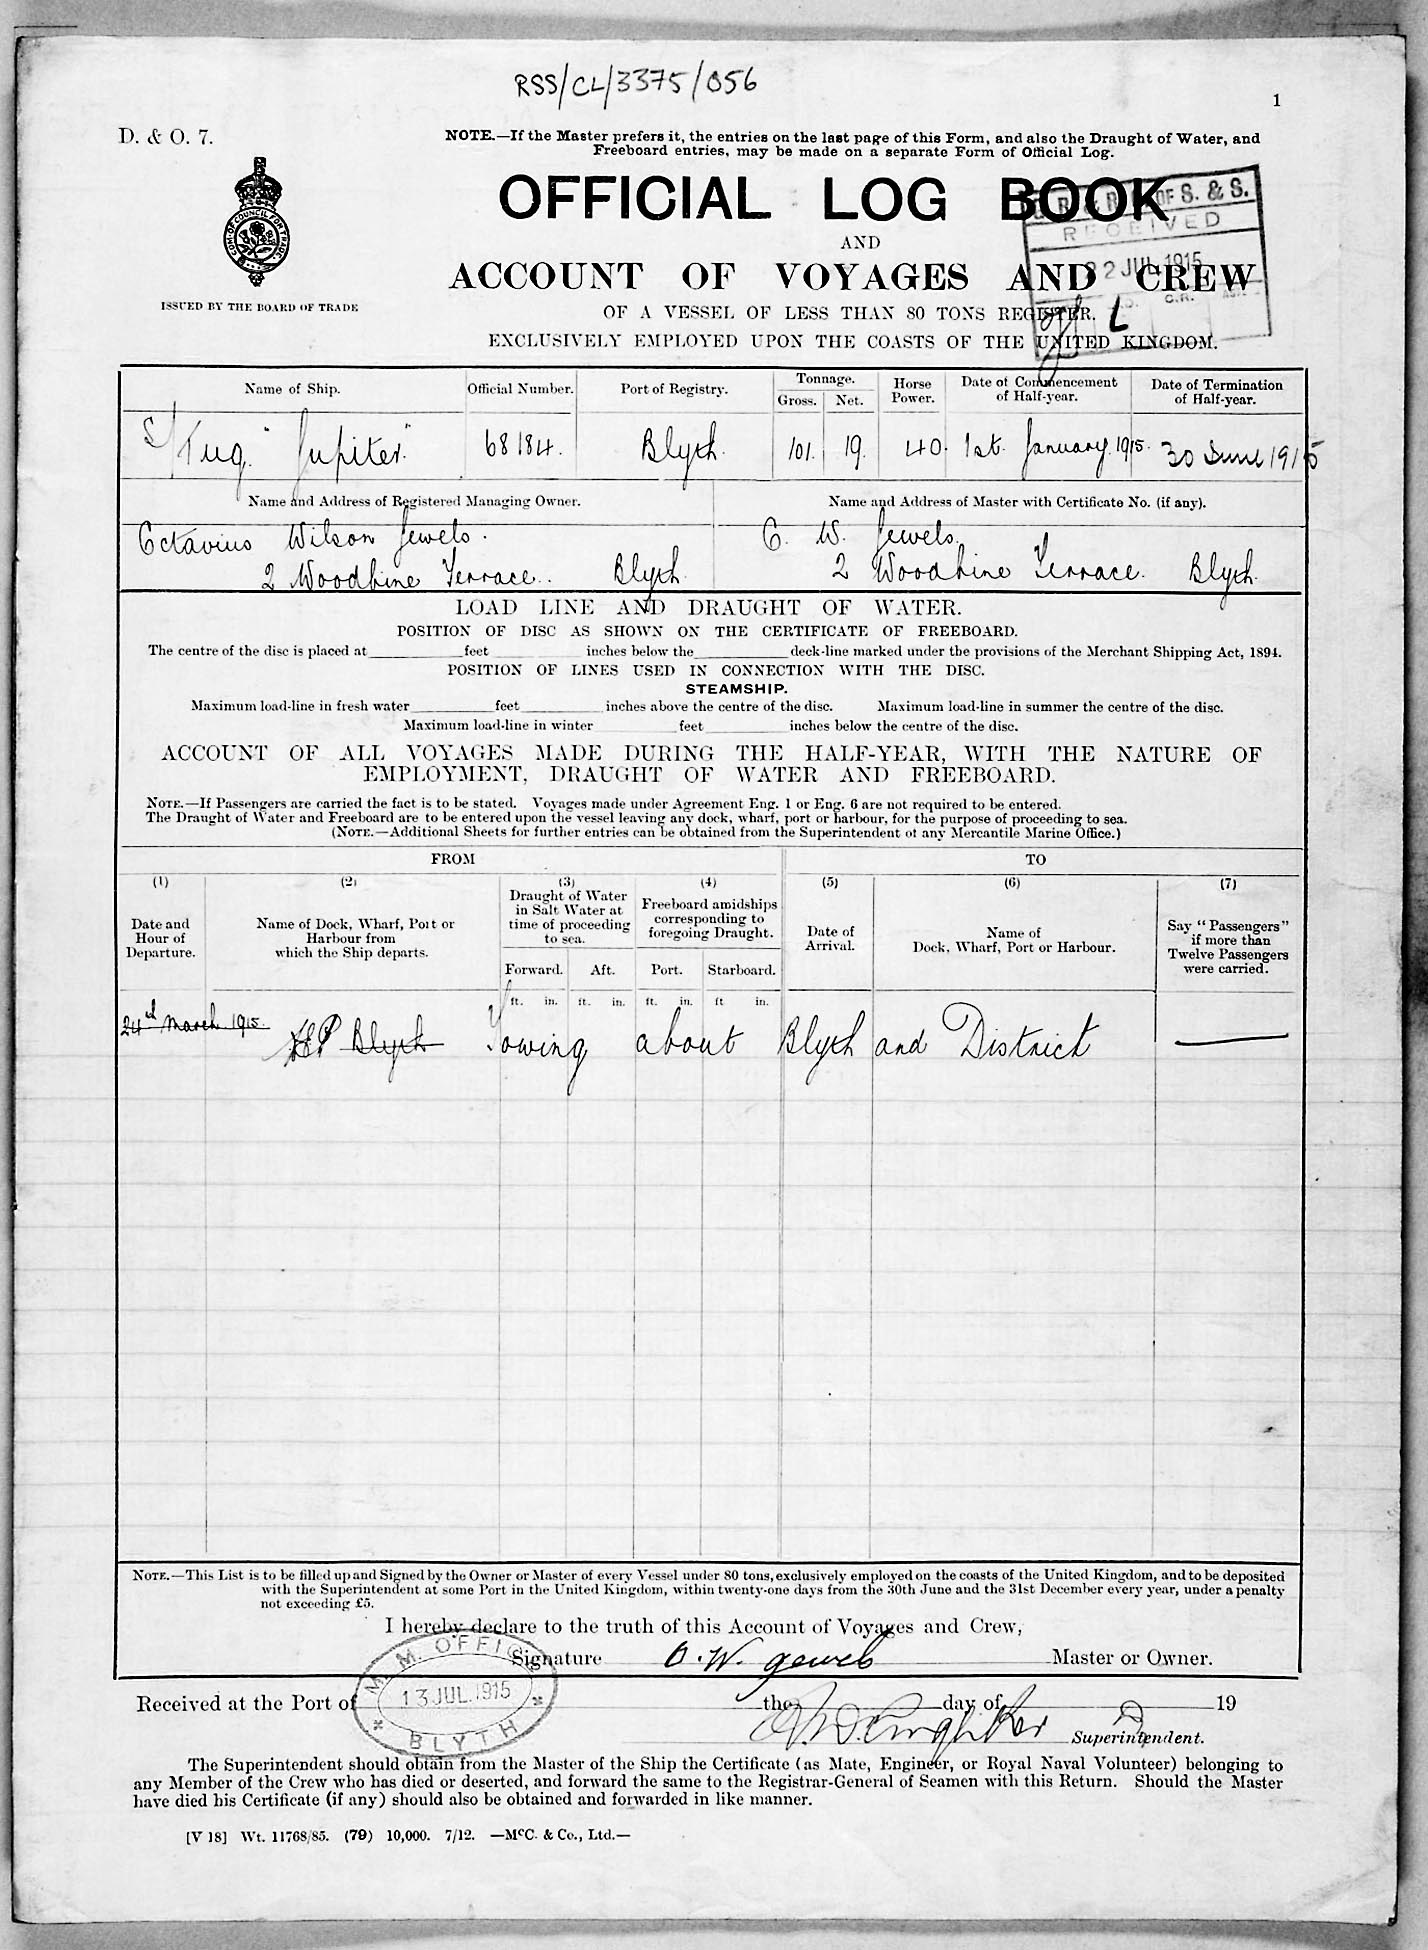 RSS/CL/3375/056
1
D. & O. 7.
NOTE.—If the Master prefers it, the entries on the last page of this Form, and also the Draught of Water, and
Freeboard entries, may be made on a separate Form of Official Log.
OFFICIAL LOG BOOK
AND
ACCOUNT OF VOYAGES AND CREW
OF A VESSEL OF LESS THAN 80 TONS REGISTER.
EXCLUSIVELY EMPLOYED UPON THE COASTS OF THE UNITED KINGDOM.
COM. OF COUNCIL FOR TRADE
ISSUED BY THE BOARD OF TRADE
OF S. & S.
RECEIVED
22 JUL 1915
C.R.
L
Name of Ship. Official Number. Port of Registry. Tonnage. Gross. Net. Horse Power. Date of Commencement of Half-year. Date of Termination of Half-year.
S/Tug. "Jupiter" 68184. Blyth. 101. 19. 40. 1st. January. 1915. 30 June 1915
Name and Address of Registered Managing Owner. Name and Address of Master with Certificate No. (if any).
Octavius Wilson Jewels. O. W. Jewels.
2 Woodbine Terrace.. Blyth. 2 Woodbine Terrace. Blyth.
LOAD LINE AND DRAUGHT OF WATER.
POSITION OF DISC AS SHOWN ON THE CERTIFICATE OF FREEBOARD.
The centre of the disc is placed at feet inches below the deck-line marked under the provisions of the Merchant Shipping Act, 1894.
POSITION OF LINES USED IN CONNECTION WITH THE DISC.
STEAMSHIP.
Maximum load-line in fresh water feet inches above the centre of the disc. Maximum load-line in summer the centre of the disc.
Maximum load-line in winter feet inches below the centre of the disc.
ACCOUNT OF ALL VOYAGES MADE DURING THE HALF-YEAR, WITH THE NATURE OF
EMPLOYMENT, DRAUGHT OF WATER AND FREEBOARD.
NOTE.—If Passengers are carried the fact is to be stated. Voyages made under Agreement Eng. 1 or Eng. 6 are not required to be entered.
The Draught of Water and Freeboard are to be entered upon the vessel leaving any dock, wharf, port or harbour, for the purpose of proceeding to sea.
(NOTE.—Additional Sheets for further entries can be obtained from the Superintendent of any Mercantile Marine Office.)
FROM TO
(1) (2) (3) (4) (5) (6) (7)
Date and Hour of Departure. Name of Dock, Wharf, Port or Harbour from which the Ship departs. Draught of Water in Salt Water at time of proceeding to sea. Freeboard amidships corresponding to foregoing Draught. Date of Arrival. Name of Dock, Wharf, Port or Harbour. Say "Passengers" if more than Twelve Passengers were carried.
Forward. Aft. Port. Starboard.
ft. in. ft. in. ft. in. ft in.
24th March 1915. Blyth Towing about Blyth and District
NOTE.—This List is to be filled up and Signed by the Owner or Master of every Vessel under 80 tons, exclusively employed on the coasts of the United Kingdom, and to be deposited
with the Superintendent at some Port in the United Kingdom, within twenty-one days from the 30th June and the 31st December every year, under a penalty
not exceeding £5.
I hereby declare to the truth of this Account of Voyages and Crew,
Signature O. W. Jewels Master or Owner.
M. M. OFFICE
13 JUL. 1915
BLYTH
Received at the Port of the day of 19
Superintendent.
The Superintendent should obtain from the Master of the Ship the Certificate (as Mate, Engineer, or Royal Naval Volunteer) belonging to
any Member of the Crew who has died or deserted, and forward the same to the Registrar-General of Seamen with this Return. Should the Master
have died his Certificate (if any) should also be obtained and forwarded in like manner.
[V 18] Wt. 11768/85. (79) 10,000. 7/12. —McC. & Co., Ltd.—